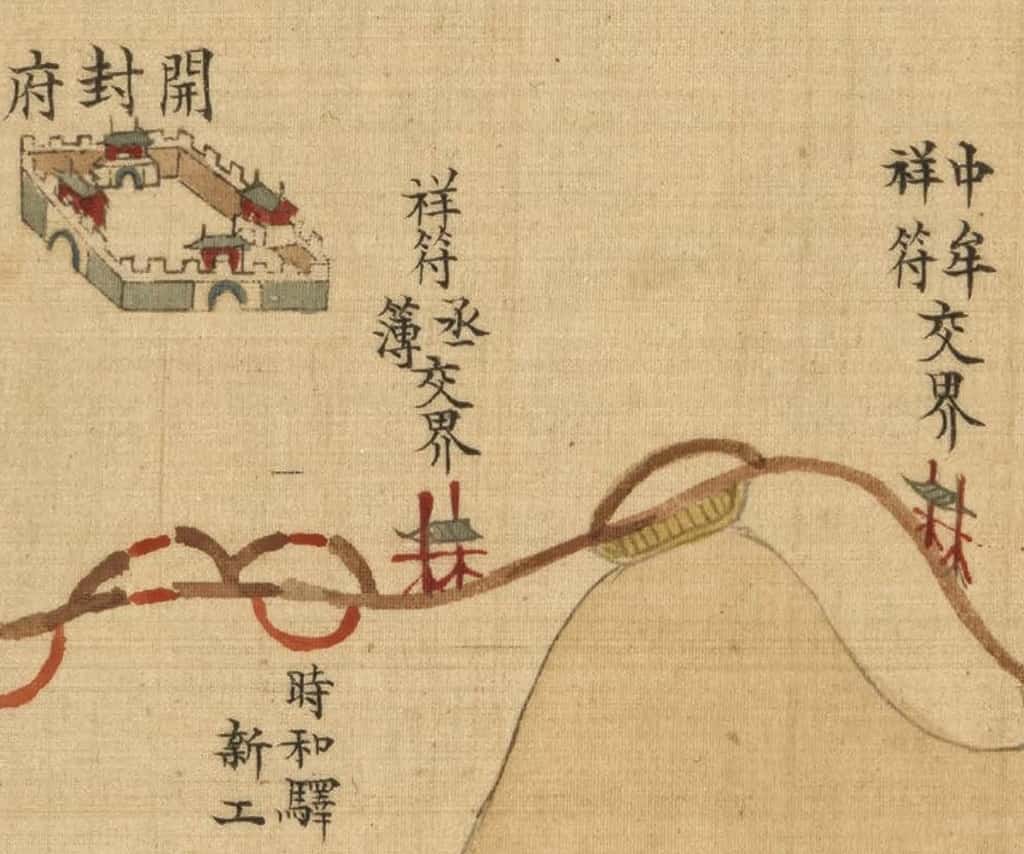 開封府
中牟
祥符
交界
祥符
丞
簿
交界
時和驛
新工